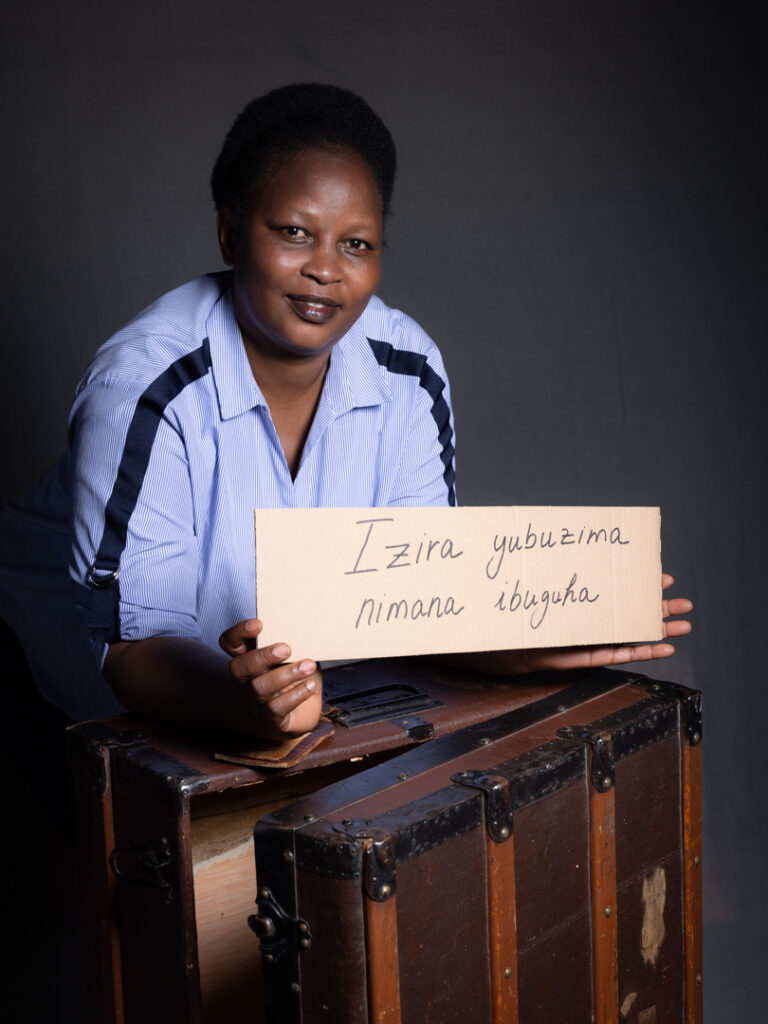 Izira yubuzima
nimana ibuguha